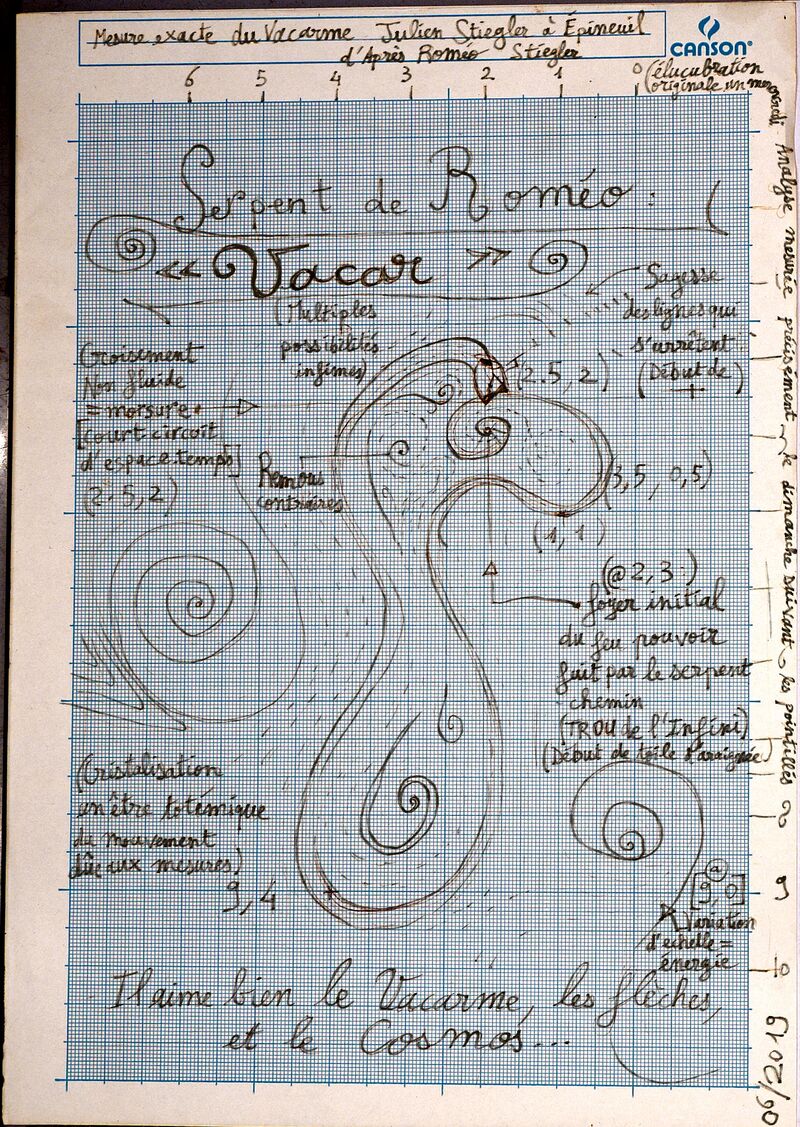 Mesure exacte du Vacarme Julien Stiegler à Épineuil
d'Après Roméo Stiegler
CANSON®
6 5 4 3 2 1 0
(élucubration
originale un mercredi
Analyse mesurée précisément le dimanche suivant les pointillés
Serpent de Roméo :
« Vacar »
(Multiples
possibilités
infimes)
Sagesse
des lignes qui
s'urrêtent
(Début de
+)
Croisement
Non fluide
= morsure
[court-circuit
d'espace.temps]
(2.5,2)
(2.5,2)
Remous
contraires
(3,5, 0,5)
(1,1)
(@2,3:)
foyer initial
du feu pouvoir
fuit par le serpent
chemin
(TROU de l'Infini)
(Début de toile d'araignée)
(Cristalisation
un être totémique
du mouvement
dûe aux mesures)
9,4
@
[9,0]
Variation
d'échelle =
énergie
8
9
10
Il aime bien le Vacarme, les flèches,
et le Cosmos...
09/2019